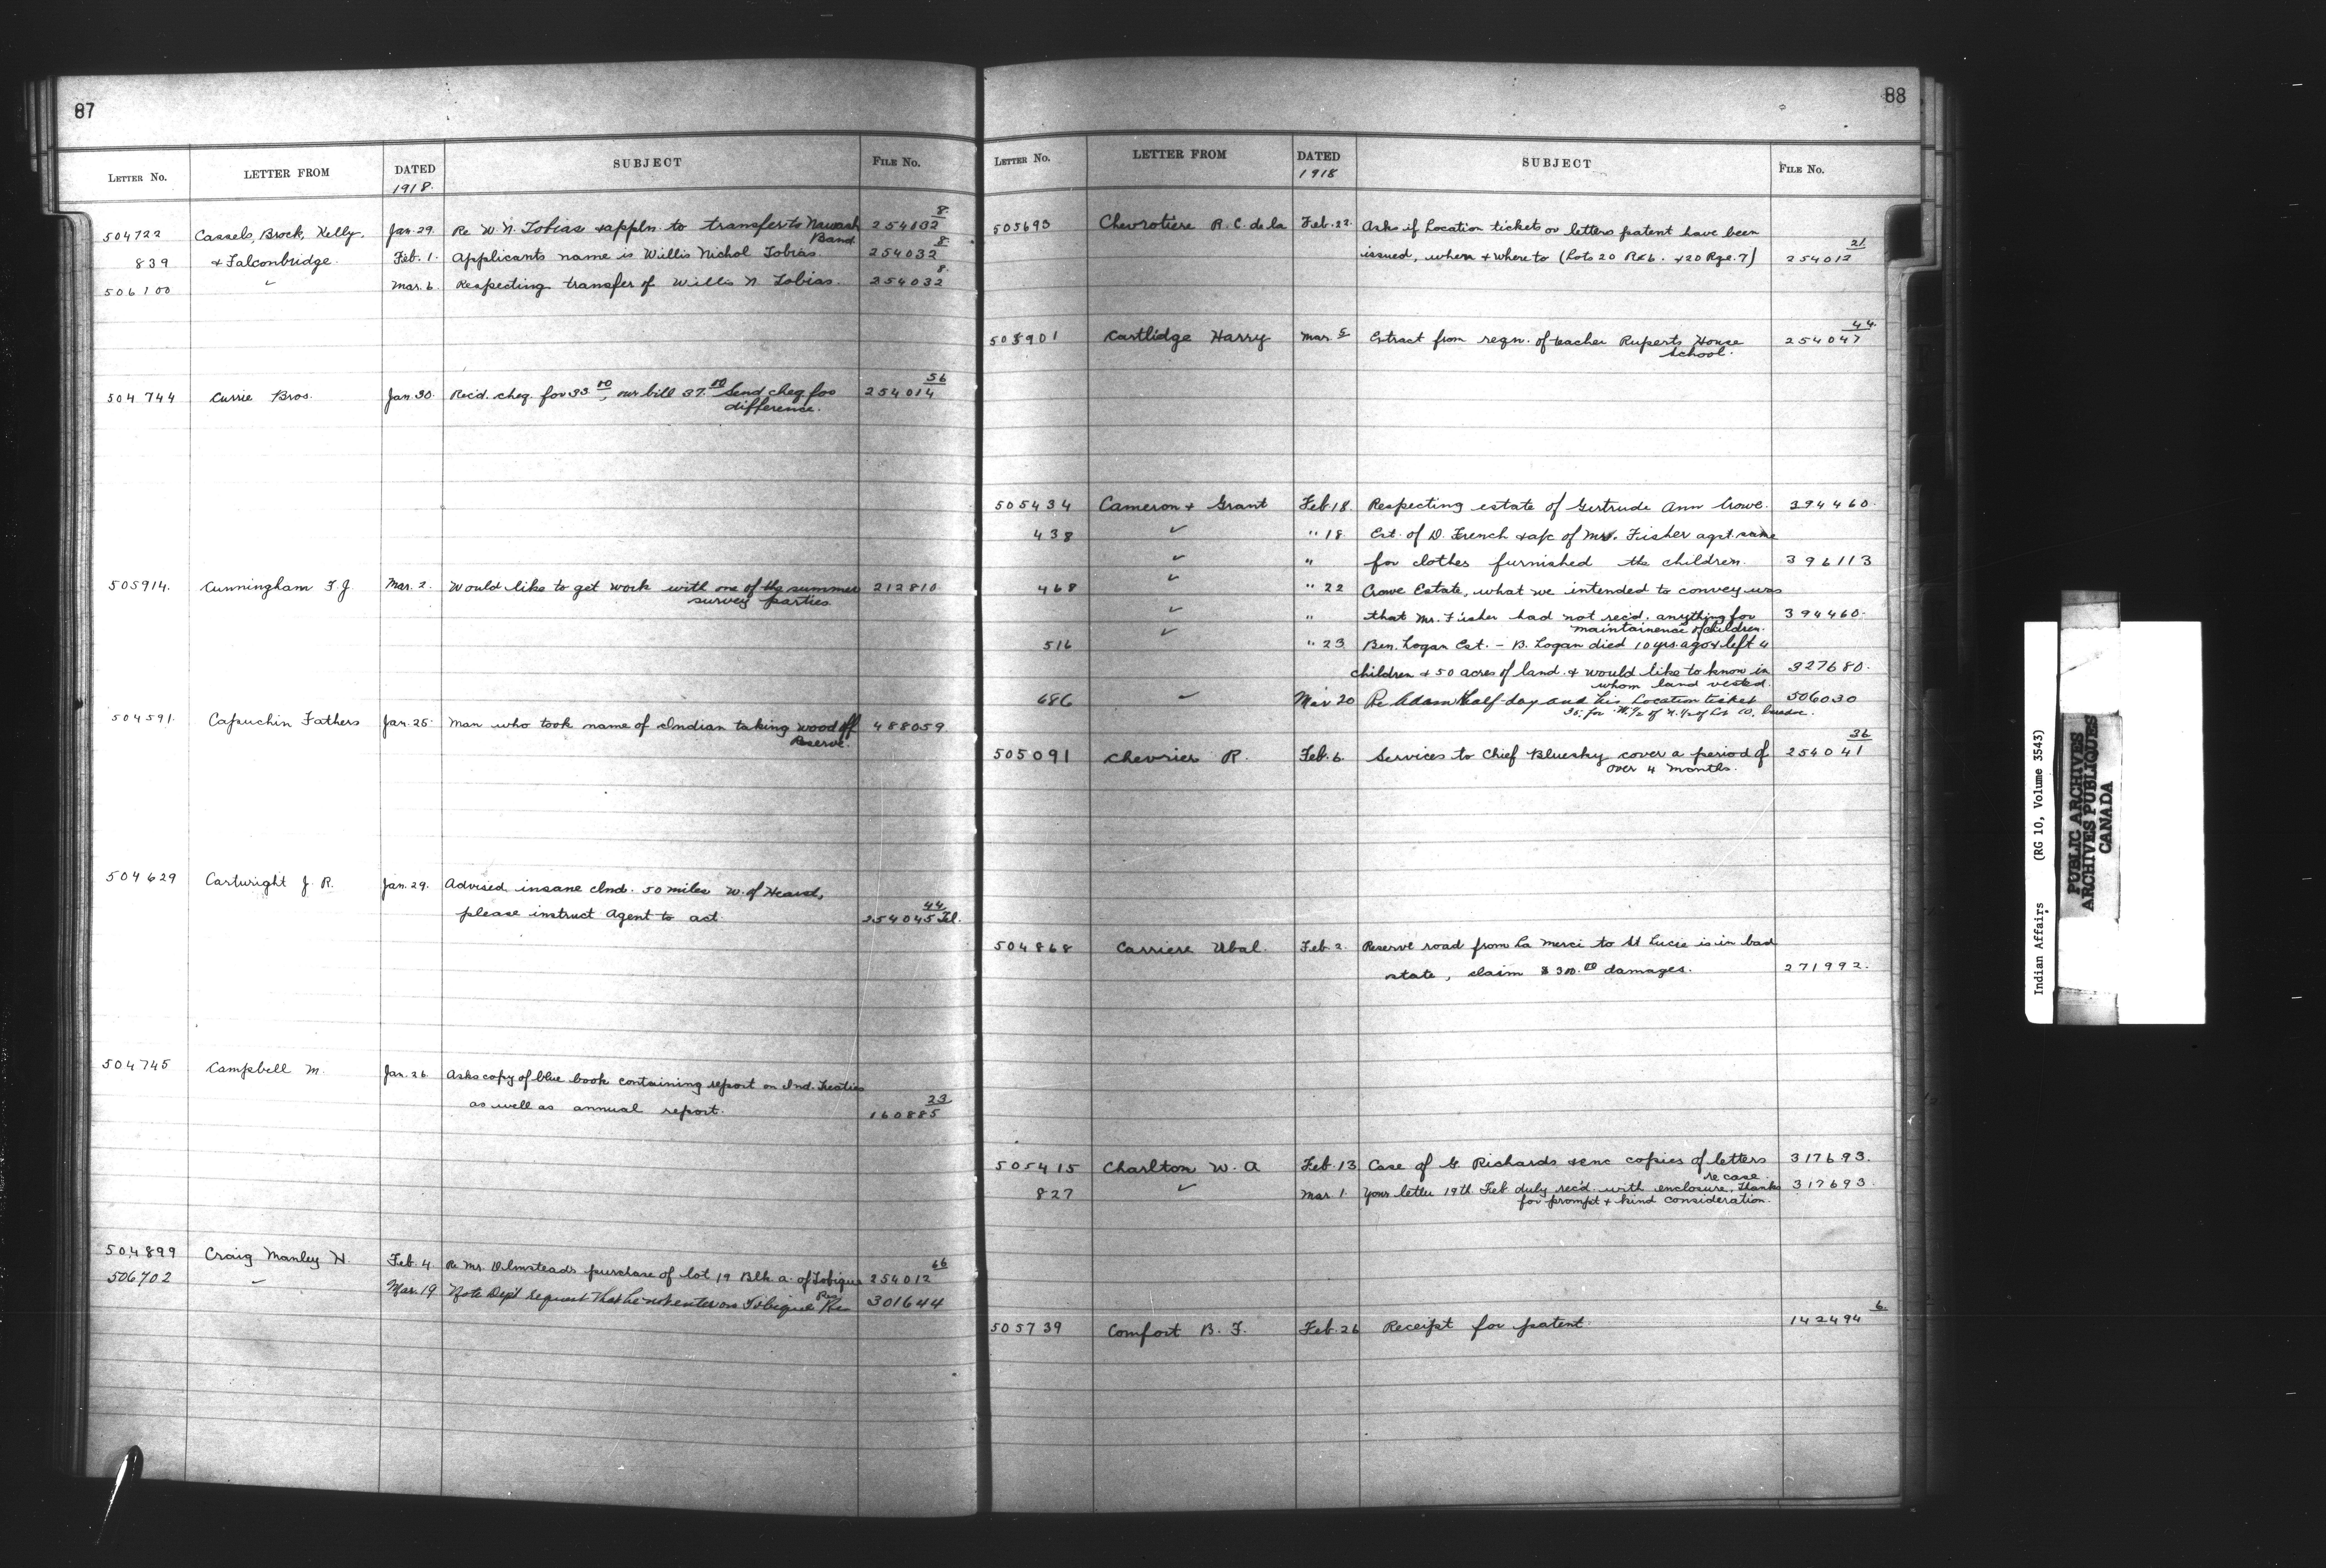 87
LETTER No. LETTER FROM DATED 1918. SUBJECT FILE No.
504722 Cassels, Brock, Kelly. Jan. 29. Re W. N. Tobias & appln. to transfer to Nawash Band. 254032 8
839 & Falconbridge. Feb. 1. Applicants name is Willis Nichol Tobias 254032 8
506100 ✓ Mar. 6. Respecting transfer of Willis N. Tobias. 254032 8
504744 Currie Bros. Jan. 30. Rec'd. cheq. for 33.00, our bill 37.00 Send cheq. for
difference. 254014 56
505914. Cunningham F. J. Mar. 2. Would like to get work with one of the summer 212810.
survey parties.
504591. Capuchin Fathers Jan. 25. Man who took name of Indian taking wood off 488059
Reserve.
504629 Cartwright J. R. Jan. 29. Advised insane Ind. 50 miles W. of Hearst,
please instruct Agent to act 254045 44 Tel.
504745 Campbell M. Jan. 26. Asks copy of blue book containing report on Ind. Treaties
as well as annual report. 160885 23
504899 Craig Manley H. Feb. 4. Re Mr. Olmstead's purchase of lot 19 Blk. a. of Tobique Res. 254012 66
506702 ✓ Mar. 19 Note Dept request that he not enter on Tobique Res 301644
88
LETTER No. LETTER FROM DATED 1918 SUBJECT FILE No.
505693 Chevrotiere R. C. de la Feb. 22. Asks if Location tickets or letters patent have been
issued, when & where to (Lots 20 R&6. & 20 Rge. 7) 254012 21
505901 Cartlidge Harry Mar. 5 Extract from regn. of teacher Ruperts House 254047 44.
School.
505434 Cameron & Grant Feb. 18. Respecting estate of Gertrude Ann Crowe. 394460.
438 ✓ " 18. Est. of D. French & a/c of Mrs. Fisher agst. same
✓ " for clothes furnished the children. 396113
468 ✓ " 22 Crowe Estate, what we intended to convey was
✓ " that Mr. Fisher had not rec'd. anything for 394460.
maintainence of children.
516 ✓ " 23 Ben. Logan Est. - B. Logan died 10 yrs. ago & left 4
children & 50 acres of land. & would like to know in 327680.
whom land vested.
686 ✓ Mar 20 Re Adam Half-day and his Location ticket 506030
35. for W. ½ of N. ½ of Lot 10,
505091 Chevrier R. Feb. 6. Services to Chief Bluesky cover a period of 254041 36
over 4 months.
504868 Carriere Ubal. Feb. 2. Reserve road from La Merci to St Lucie is in bad
state, claim $300.00 damages. 271992.
505415 Charlton W. A Feb. 13 Case of G. Richards & enc copies of letters 317693.
re case
827 ✓ Mar. 1. Your letter 19th Feb duly rec'd. with enclosure. Thanks 317693.
for prompt & kind consideration.
505739 Comfort B. F. Feb. 26 Receipt for patent. 142494 6.
Indian Affairs (RG 10, Volume 3543)
PUBLIC ARCHIVES
ARCHIVES PUBLIQUES
CANADA